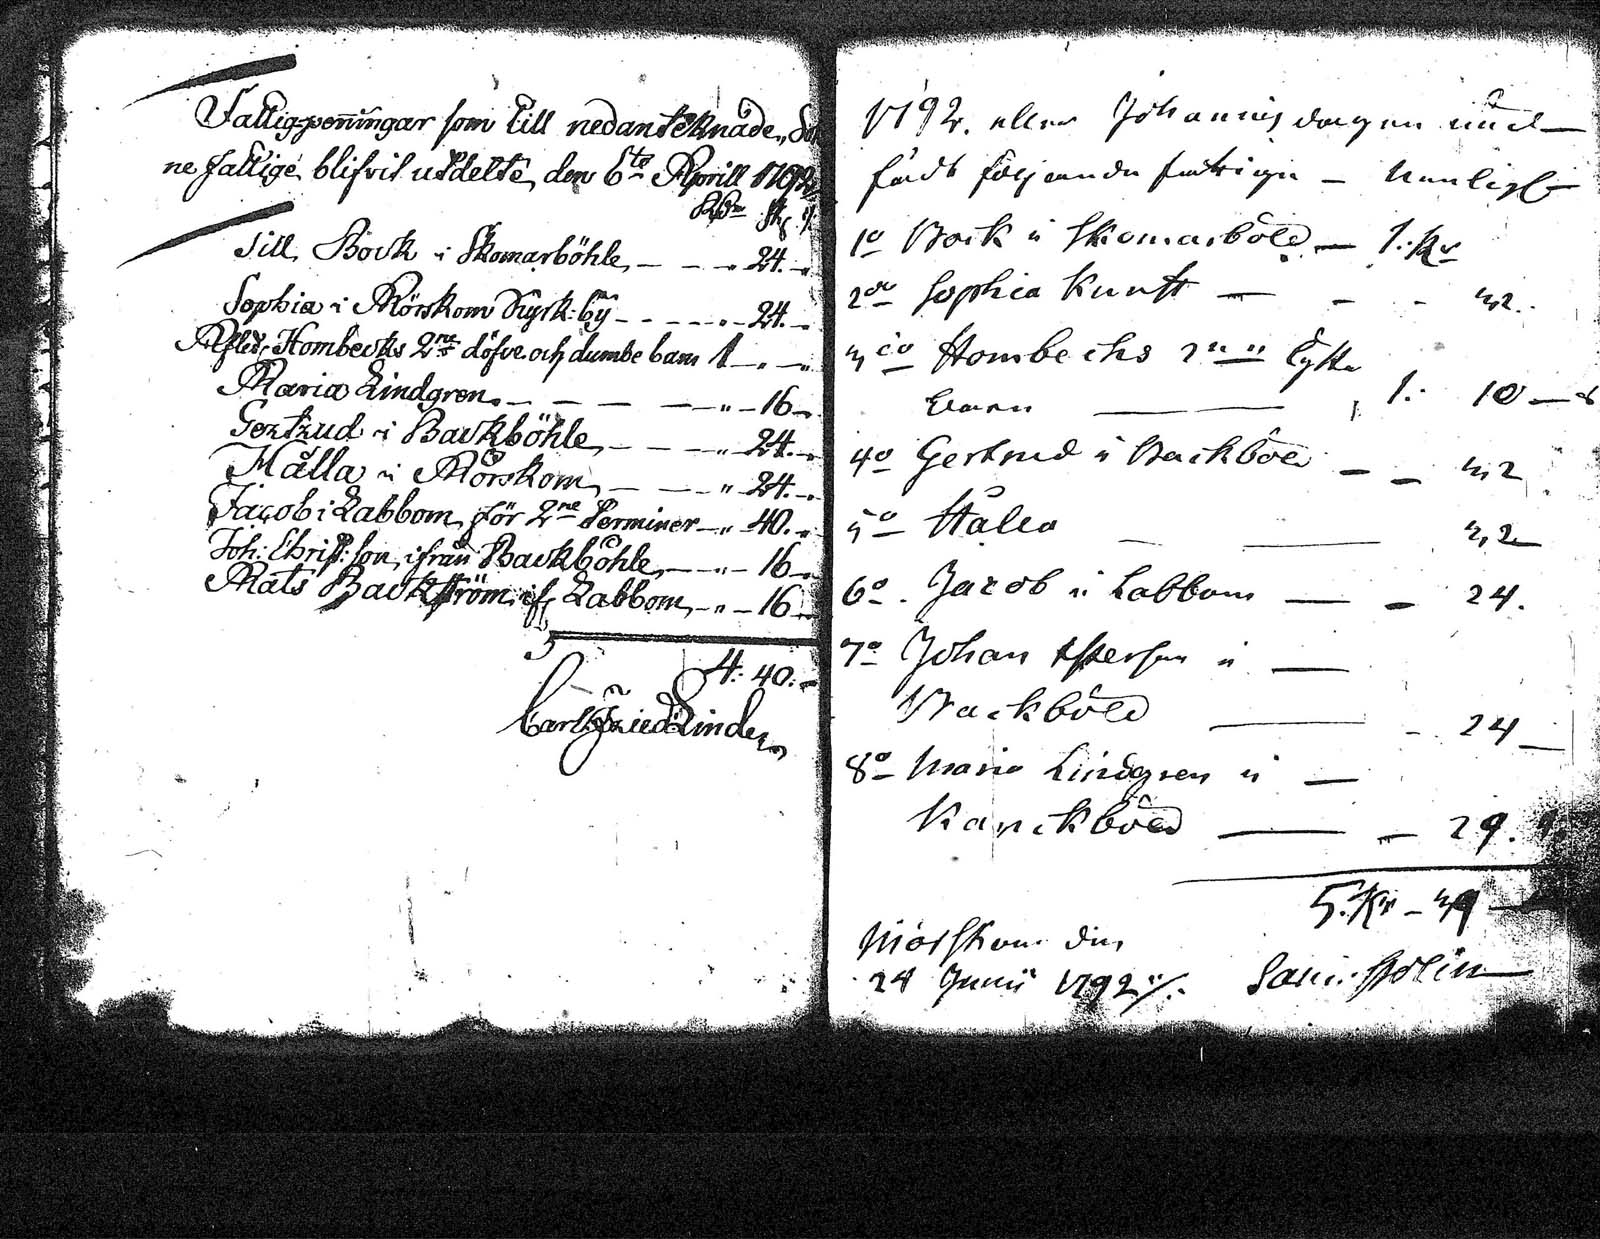 Fattigpenningar som till nedanteknade, Sok
ne fattige, blifvit utdelte, den 6te Aprill 1792
Rdr Sk.
Till Bock i Skomarböhle, — — " 24. "
Sophia i Mörskom Kyrk:by — — " — 24. —
Afled. Hombecks 2ne döfve och dumbe barn 1 — " —
Maria Lindgren. — — — — " — 16 —
Gertrud i Backböhle, — — — " 24. —
Målla i Mörskom, — — — " — 24. —
Jacob i Labbom, för 2ne Terminer — " — 40. "
Joh: Christ:son, ifrån Backböhle, — " — 16 —
Mats Backström, if. Labbom, — " — 16 —
4: 40: —
Carl Fried Linder
1792. eller Johannis dagen und
fådt följande fattige — Nemligt
1o Bock i Skomarböle — 1. Rr
2do Sophia Kunft — — - 32.
3io Hombecks 2ne
barn — — 1. 10 —
4o Gertrud i Backböle — — 32
5o Målla — — 32 —
6o. Jacob i Labbom — — 24.
7o Johan i —
Backböle — - 24 —
8o Maria Lindgren i —
Kanckböle — — 29.
5. Rr — 39 —
Mörskom den
24 Junii 1792 ./.